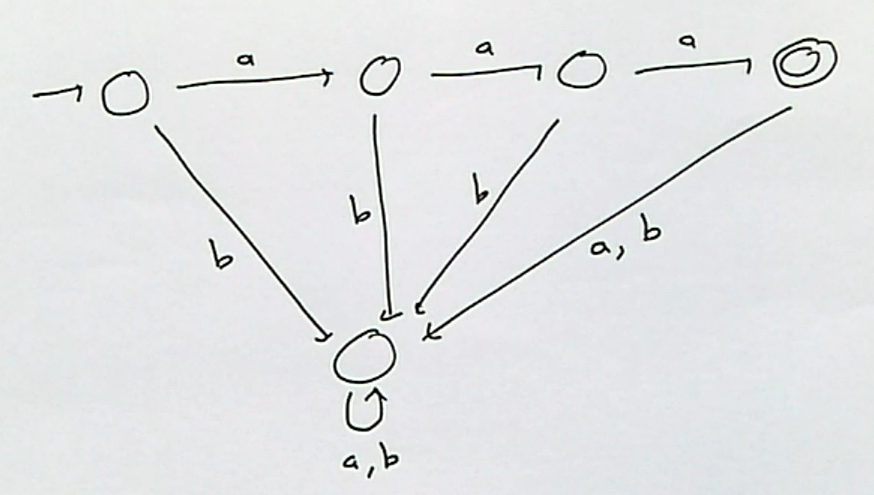 a a a
b b b a, b
a, b